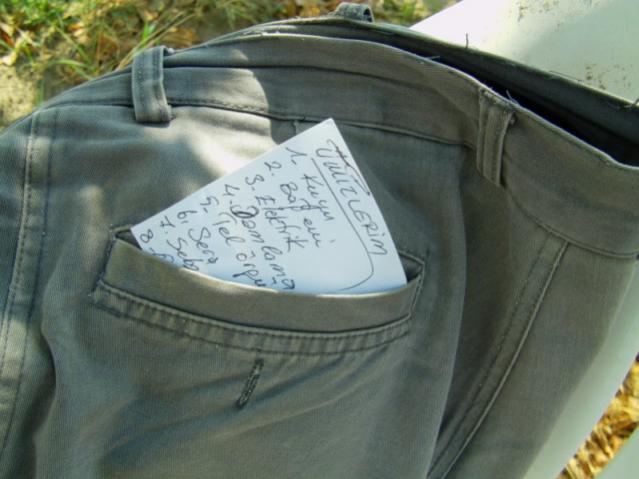 ÜMİTLERİM
1. Kuyu
2. Bağ evi
3. Elektrik
4. Damlama
5. Tel örgü
6. Sera
7. Seb
8.